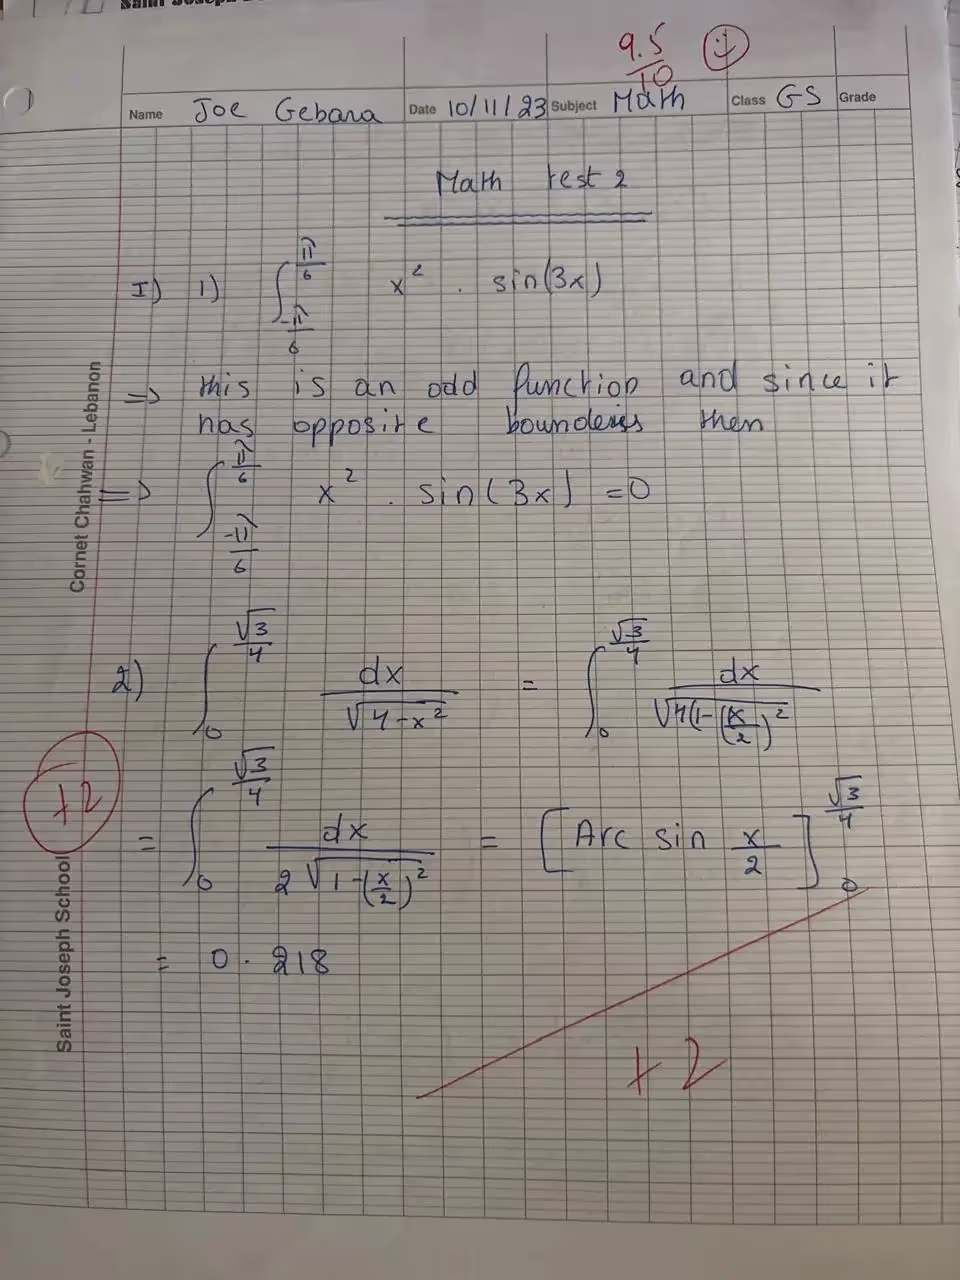 9.5/10
Name Joe Gebara Date 10/11/23 Subject Math Class GS Grade
Math test 2
I) 1) ∫_{-π/6}^{π/6} x² . sin(3x)
=> this is an odd function and since it
has opposite bounderies then
=> ∫_{-π/6}^{π/6} x² . sin(3x) = 0
2) ∫_0^{√3/4} dx/√(4-x²) = ∫_0^{√3/4} dx/√(4(1-(x/2)²
+2
= ∫_0^{√3/4} dx/(2√(1-(x/2)²)) = [Arc sin x/2]_0^{√3/4}
= 0.218
+2
Cornet Chahwan - Lebanon
Saint Joseph School